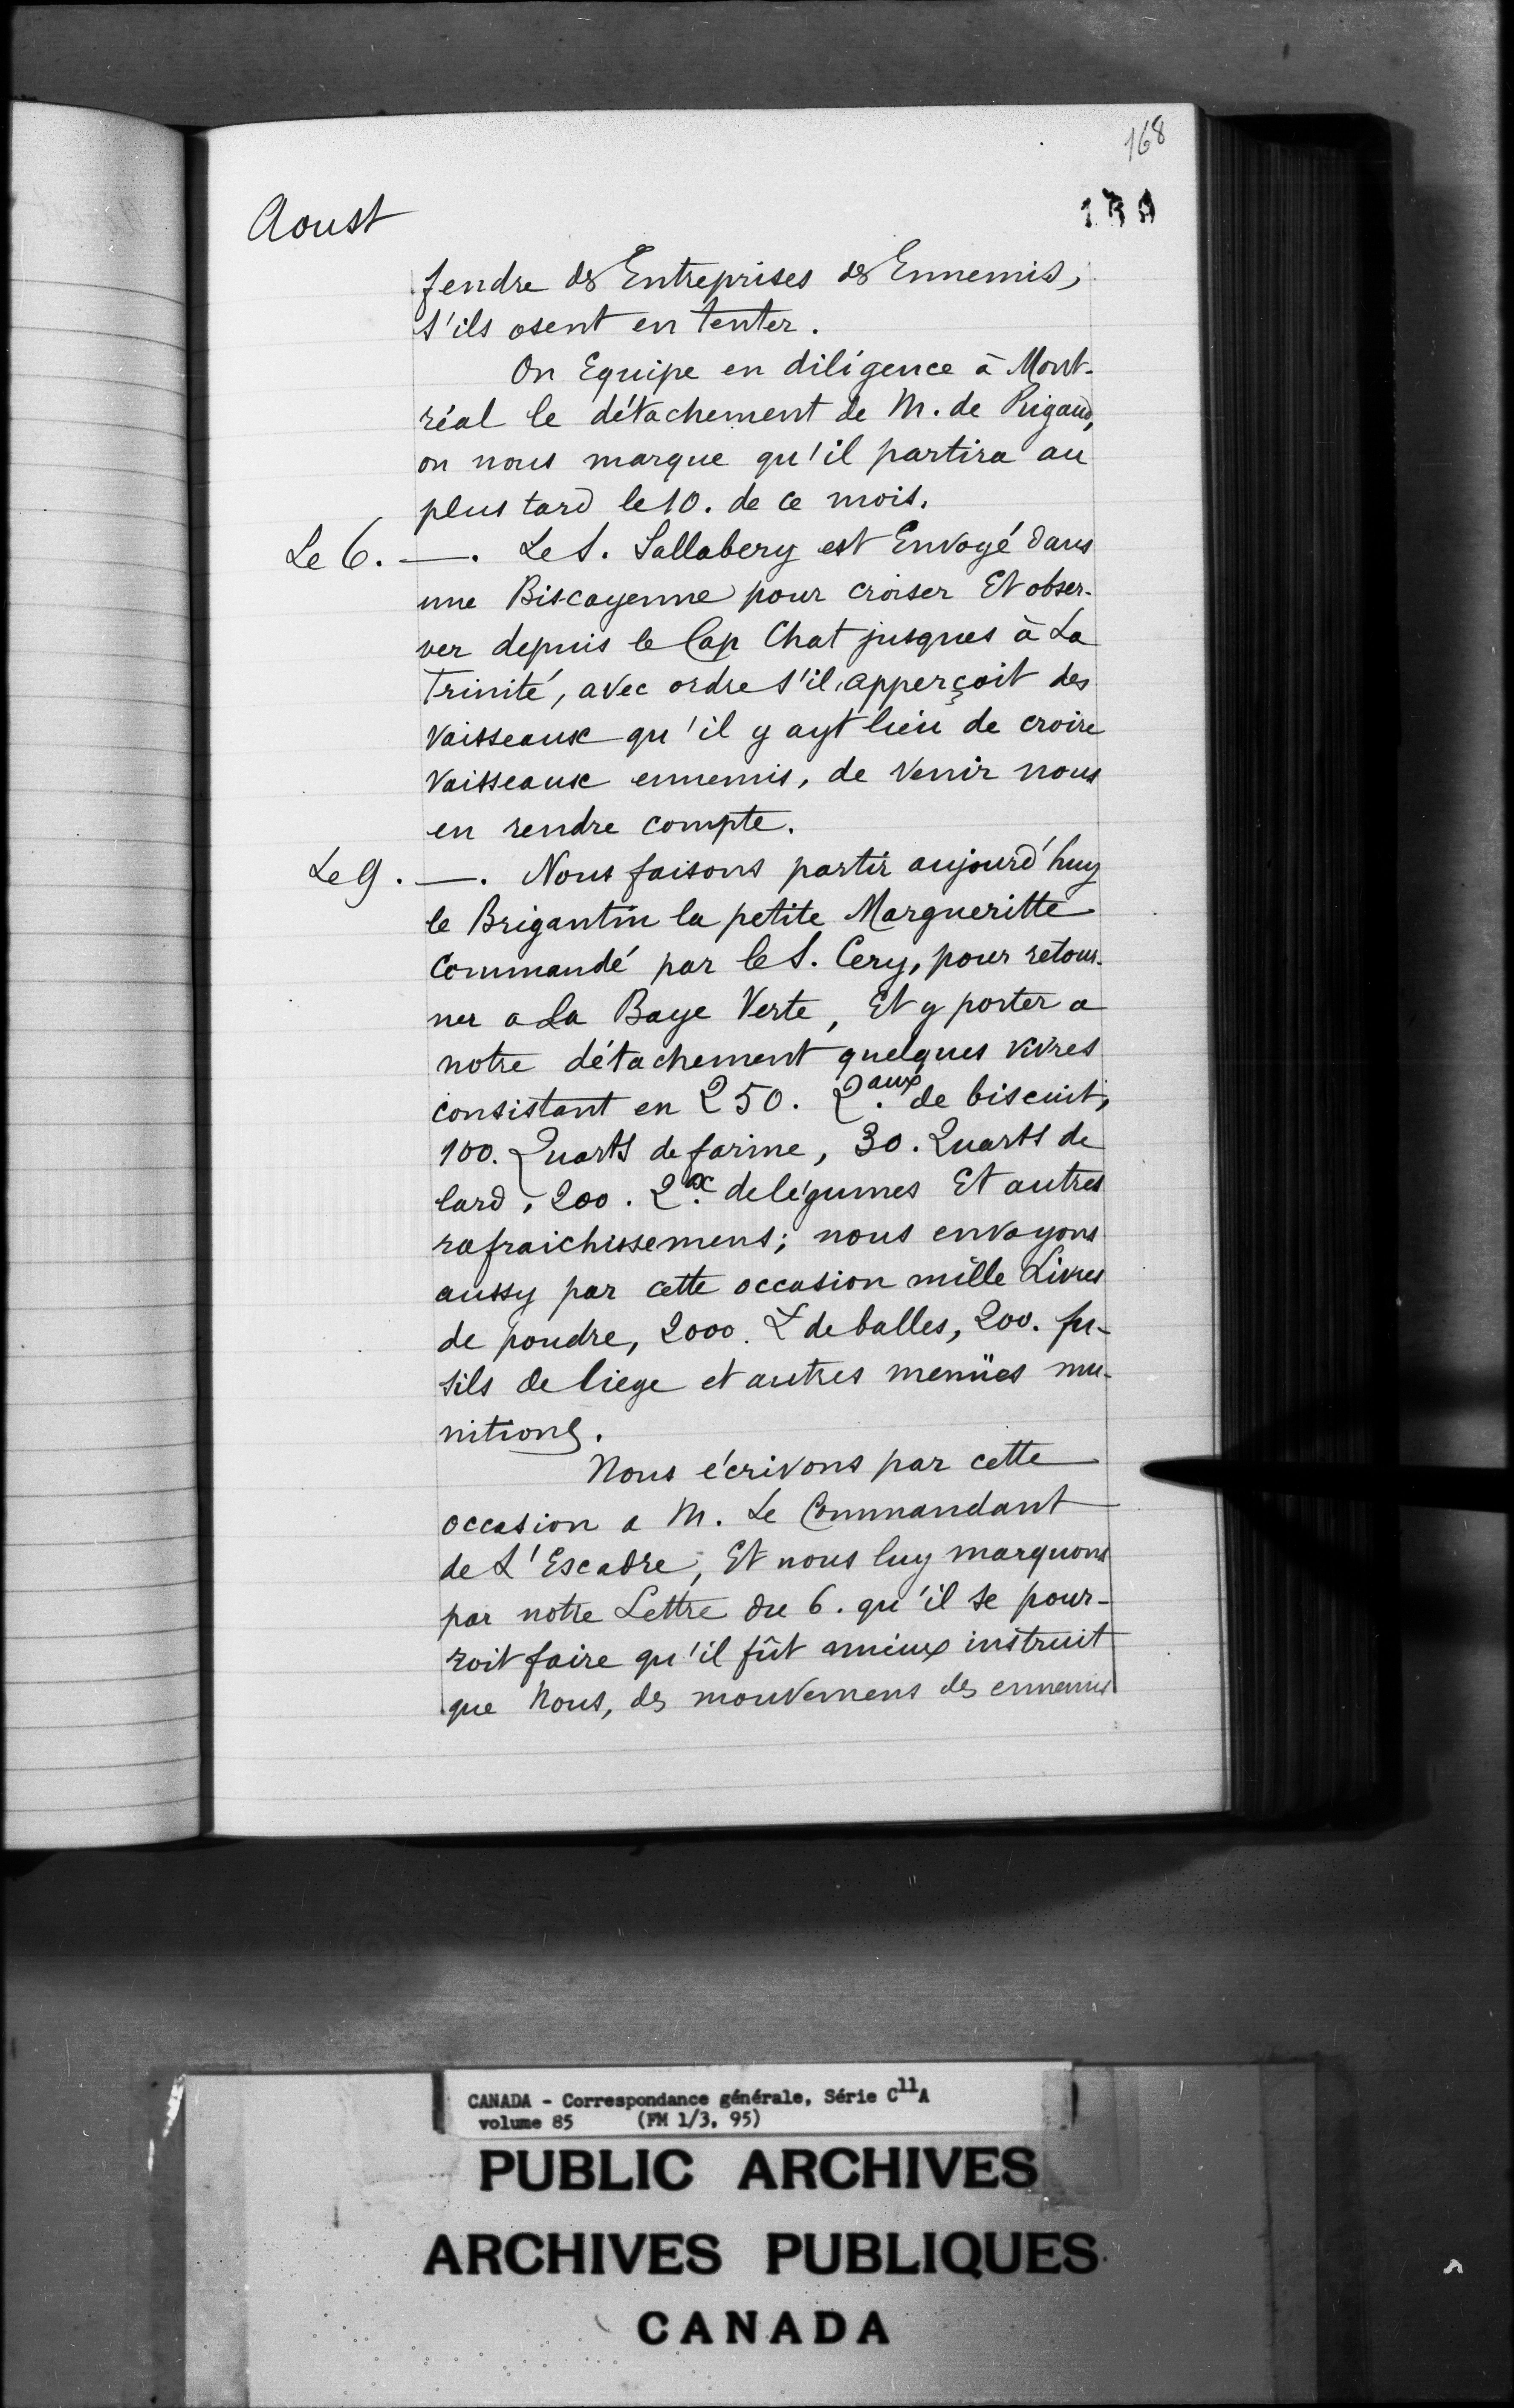 168
Aoust
fendre des Entreprises des Ennemis,
s'ils osent en tenter.
On Equipe en diligence à Mont-
réal le détachement de M. de Rigaud,
on nous marque qu'il partira au
plus tard le 10. de ce mois.
Le 6. —. Le S. Sallabery est Envoyé dans
une Biscayenne pour croiser Et obser-
ver depuis le Cap Chat jusques à La
Trinité, avec ordre s'il apperçoit des
Vaisseaux qu'il y ayt lieu de croire
Vaisseaux ennemis, de Venir nous
en rendre compte.
Le 9. —. Nous faisons partir aujourd'huy
le Brigantin la petite Margueritte
Commandé par le S. Cery, pour retour-
ner a La Baye Verte, Et y porter a
notre détachement quelques vivres
consistant en 250. Q.aux de biscuit,
100. Quarts de farine, 30. Quarts de
lard, 200. Q.x de légumes Et autres
rafraichissemens; nous envoyons
aussy par cette occasion mille Livres
de poudre, 2000. L de balles, 200. fu-
sils de liege et autres menües mu-
nitions.
Nous écrivons par cette
occasion a M. Le Commandant
de L'Escadre, Et nous luy marquons
par notre Lettre du 6. qu'il se pour-
roit faire qu'il fût mieux instruit
que Nous, des mouvemens des ennemis
CANADA - Correspondance générale, Série C11A
volume 85 (FM 1/3, 95)
PUBLIC ARCHIVES
ARCHIVES PUBLIQUES
CANADA